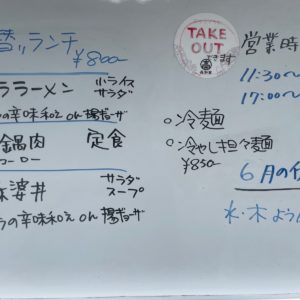 替りランチ
¥800
ラーメン 小ライス
サラダ
の辛味和え or 揚ギョーザ
鍋肉 定食
コーロー
麻婆丼 サラダ
スープ
うの辛味和え or 揚ギョーザ
TAKE
OUT
できます
営業時
11:30〜
17:00〜
○冷麺
○冷やし担々麺
¥850
6月の
水・木よう